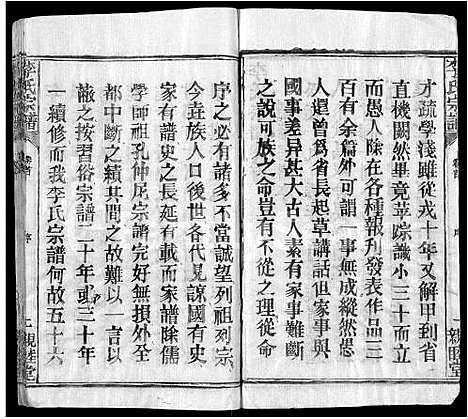 李氏宗譜
卷首
序
親睦堂
才疏學淺雖從戎十年又解甲到省
直機關然畢竟萍踪識小三十而出
虎歷任人民除在各種報刊發表作品二
百有余篇外可謂一事無成縱然愚
人還曾爲省長起草講話但家事與
國事差异甚大古人有家事難斷
之說可恢之命豈有不從之理從命
序之必有諸多不當誠望列祖列宗
今垚族人口後世各代見諒國有史
家有譜史之長延有載而家譜除儒
學師祖孔仲尼宗譜完好無損外
都中斷之續其間之故難以一言以
蔽之按習俗宗譜二十年或三十年
一續修而我李氏宗譜何故五十六
李氏宗譜
卷首
序
親睦堂